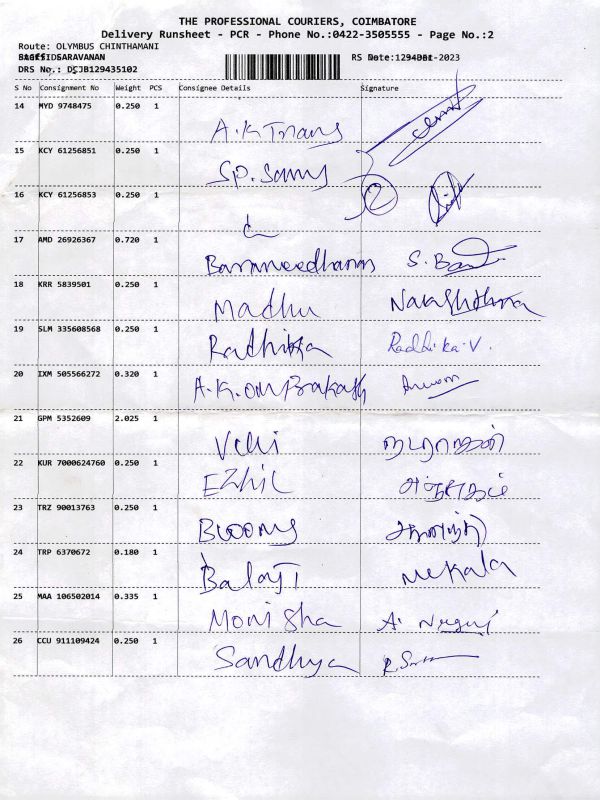 THE PROFESSIONAL COURIERS, COIMBATORE
Delivery Runsheet - PCR - Phone No.:0422-3505555 - Page No.:2
Route: OLYMBUS CHINTHAMANI
SARAVANAN
RS Date: -2023
DRS No.: DSJB129435102
S No Consignment No Weight PCS Consignee Details Signature
14 MYD 9748475 0.250 1
A.K Trans
15 KCY 61256851 0.250 1
Sp. Sams
16 KCY 61256853 0.250 1
2
17 AMD 26926367 0.720 1
Baraneedharan S. Ban
18 KRR 5839501 0.250 1
Madhu
19 SLM 335608568 0.250 1
Radhika Raddika.V.
20 IXM 505566272 0.320 1
A.K.OM Brakash
21 GPM 5352609 2.025 1
Velu நடராஜன்
22 KUR 7000624760 0.250 1
EZhil
23 TRZ 90013763 0.250 1
Blooms
24 TRP 6370672 0.180 1
Balaji Mekala
25 MAA 106502014 0.335 1
Monisha
26 CCU 911109424 0.250 1
Sandhya